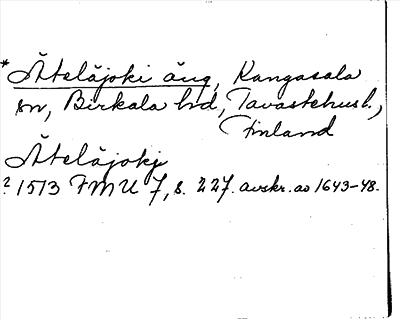 * Äteläjoki äng, Kangasala
sn, Birkala hd, Tavastehusl.,
Finland
Äteläjokj
? 1513 FMU 7, s. 227. avskr. ao 1643-48.